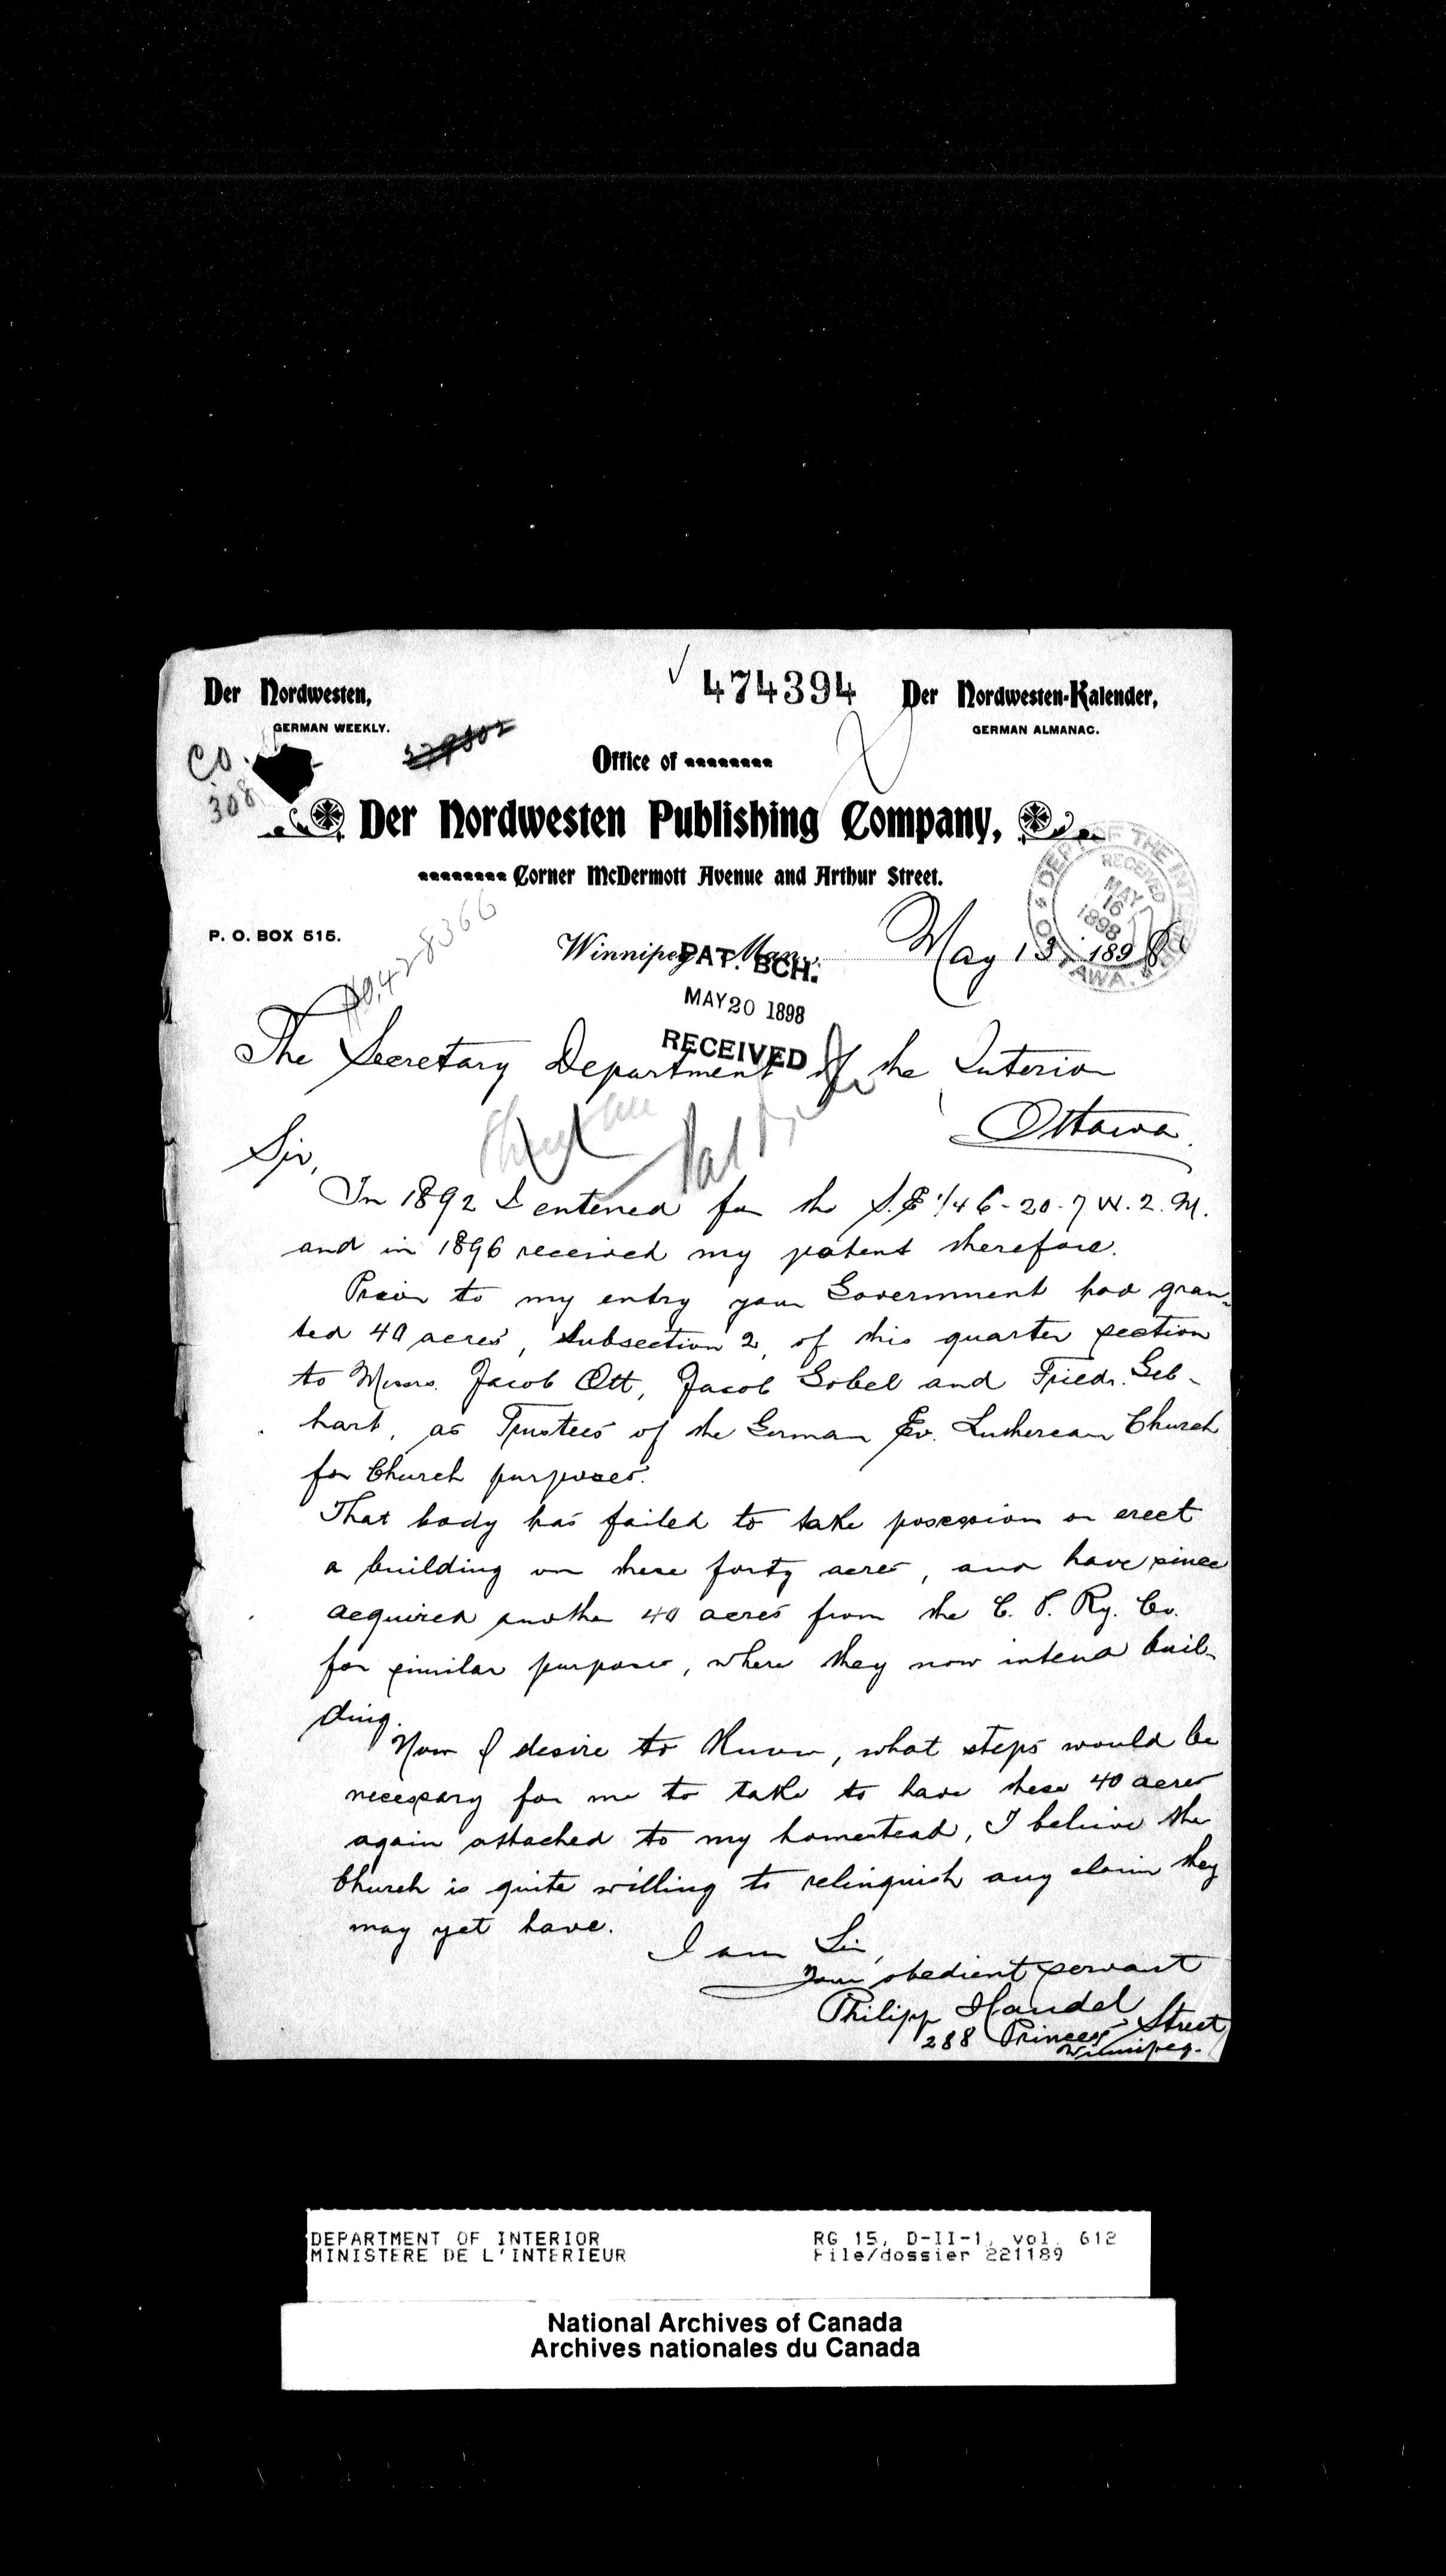 474394
Der Nordwesten,
GERMAN WEEKLY.
Der Nordwesten-Kalender,
GERMAN ALMANAC.
C.O.
308
Office of
Der Nordwesten Publishing Company,
Corner McDermott Avenue and Arthur Street.
DEPT OF THE INTERIOR
RECEIVED
MAY
16
1898
OTTAWA.
P. O. BOX 515.
Winnipeg, Man., May 13. 1898
PAT. BCH.
MAY 20 1898
RECEIVED
The Secretary Department of the Interior
Ottawa.
Sir,
In 1892 I entered for the S.E 1/4 6-20-7 W. 2. M.
and in 1896 received my patent therefore.
Prior to my entry your Government had gran-
ted 40 acres, Subsection 2, of this quarter section
to Messrs. Jacob Ott, Jacob Gobel and Friedr. Geb-
hart, as Trustees of the German Ev. Lutherean Church
for Church purposes.
That body has failed to take posession or erect
a building on these forty acres, and have since
acquired another 40 acres from the C. P. Ry. Co.
for similar purposes, where they now intend buil-
ding.
Now I desire to Know, what steps would be
necessary for me to take to have these 40 acres
again attached to my homestead, I believe the
Church is quite willing to relinquish any claim they
may yet have.
I am Sir,
Your obedient servant
Philipp Haudel
288 Princess Street
Winnipeg.
DEPARTMENT OF INTERIOR
MINISTERE DE L'INTERIEUR
RG 15, D-II-1, vol. 612
File/dossier 221189
National Archives of Canada
Archives nationales du Canada